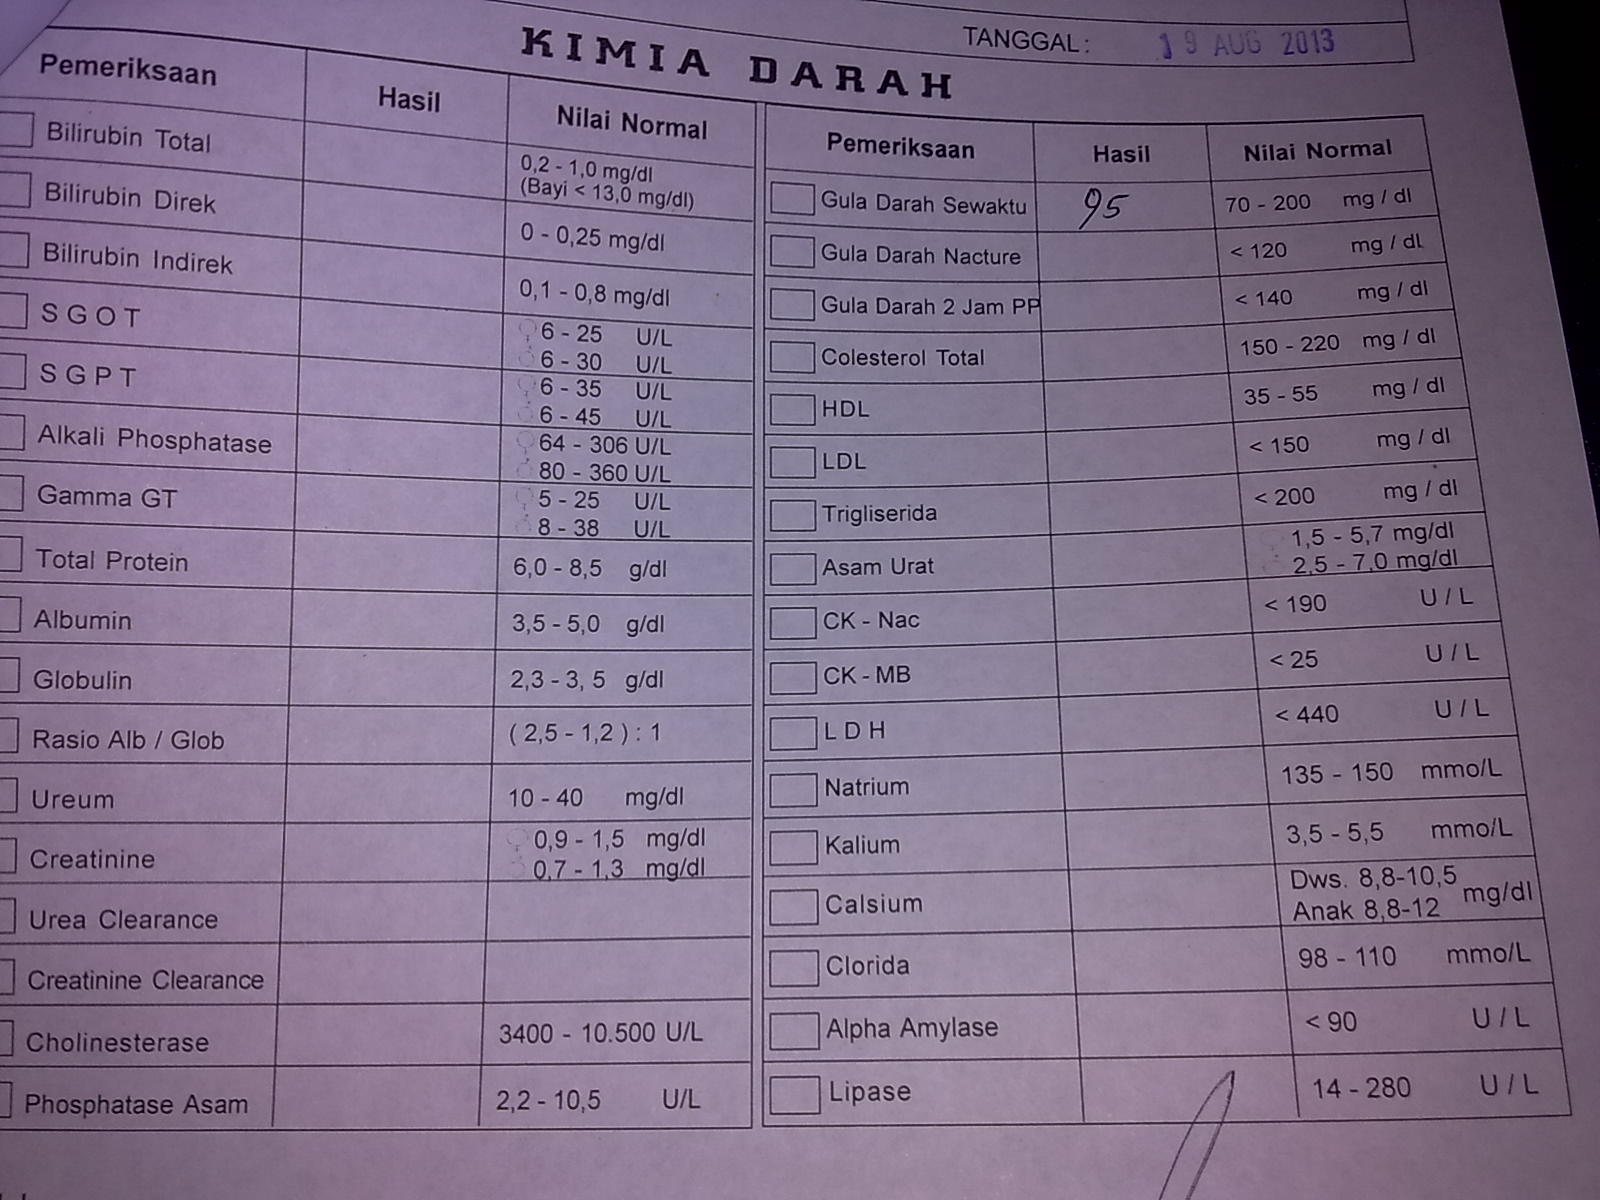 TANGGAL : 19 AUG 2013
KIMIA DARAH
Pemeriksaan Hasil Nilai Normal
Bilirubin Total 0,2 - 1,0 mg/dl
(Bayi < 13,0 mg/dl)
Bilirubin Direk 0 - 0,25 mg/dl
Bilirubin Indirek 0,1 - 0,8 mg/dl
SGOT ♀ 6 - 25 U/L
♂ 6 - 30 U/L
SGPT ♀ 6 - 35 U/L
♂ 6 - 45 U/L
Alkali Phosphatase ♀ 64 - 306 U/L
♂ 80 - 360 U/L
Gamma GT ♀ 5 - 25 U/L
♂ 8 - 38 U/L
Total Protein 6,0 - 8,5 g/dl
Albumin 3,5 - 5,0 g/dl
Globulin 2,3 - 3, 5 g/dl
Rasio Alb / Glob ( 2,5 - 1,2 ) : 1
Ureum 10 - 40 mg/dl
Creatinine ♀ 0,9 - 1,5 mg/dl
♂ 0,7 - 1,3 mg/dl
Urea Clearance
Creatinine Clearance
Cholinesterase 3400 - 10.500 U/L
Phosphatase Asam 2,2 - 10,5 U/L
Pemeriksaan Hasil Nilai Normal
Gula Darah Sewaktu 95 70 - 200 mg / dl
Gula Darah Nacture < 120 mg / dl
Gula Darah 2 Jam PP < 140 mg / dl
Colesterol Total 150 - 220 mg / dl
HDL 35 - 55 mg / dl
LDL < 150 mg / dl
Trigliserida < 200 mg / dl
Asam Urat 1,5 - 5,7 mg/dl
2,5 - 7,0 mg/dl
CK - Nac < 190 U / L
CK - MB < 25 U / L
LDH < 440 U / L
Natrium 135 - 150 mmo/L
Kalium 3,5 - 5,5 mmo/L
Calsium Dws. 8,8-10,5 mg/dl
Anak 8,8-12
Clorida 98 - 110 mmo/L
Alpha Amylase < 90 U / L
Lipase 14 - 280 U / L